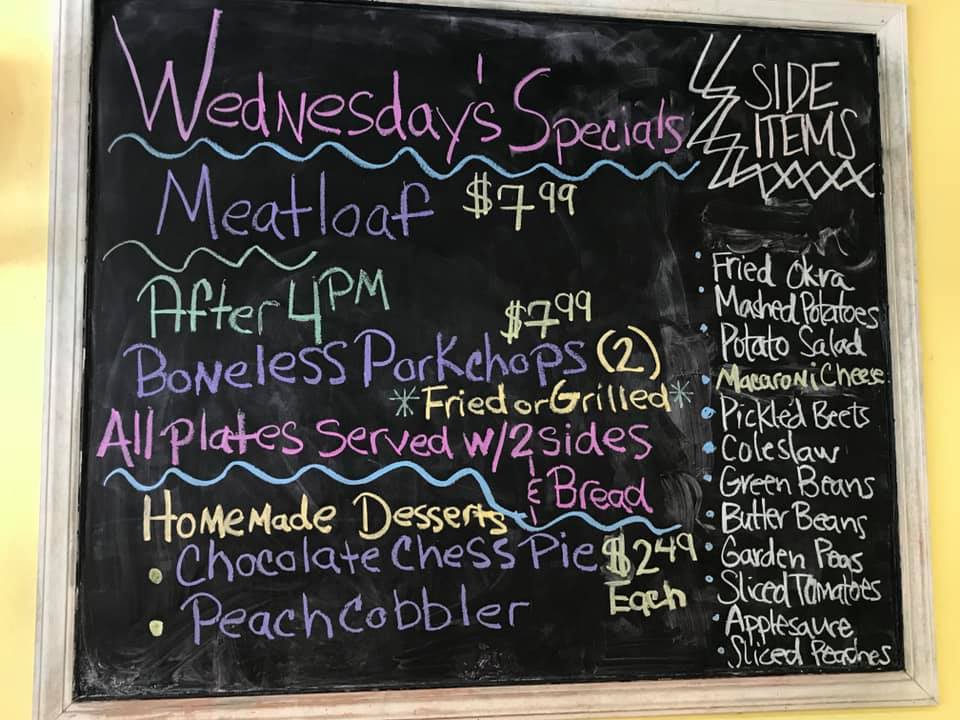 Wednesday's Specials
Meatloaf $7.99
After 4PM
$7.99
Boneless Porkchops (2)
*Fried or Grilled*
All plates Served w/2 sides
& Bread
Homemade Desserts
• Chocolate Chess Pie $2.49
• Peach Cobbler Each
SIDE
ITEMS
• Fried Okra
• Mashed Potatoes
• Potato Salad
• Macaroni Cheese
• Pickled Beets
• Coleslaw
• Green Beans
• Butter Beans
• Garden Peas
• Sliced Tomatoes
• Applesaure
• Sliced Peaches